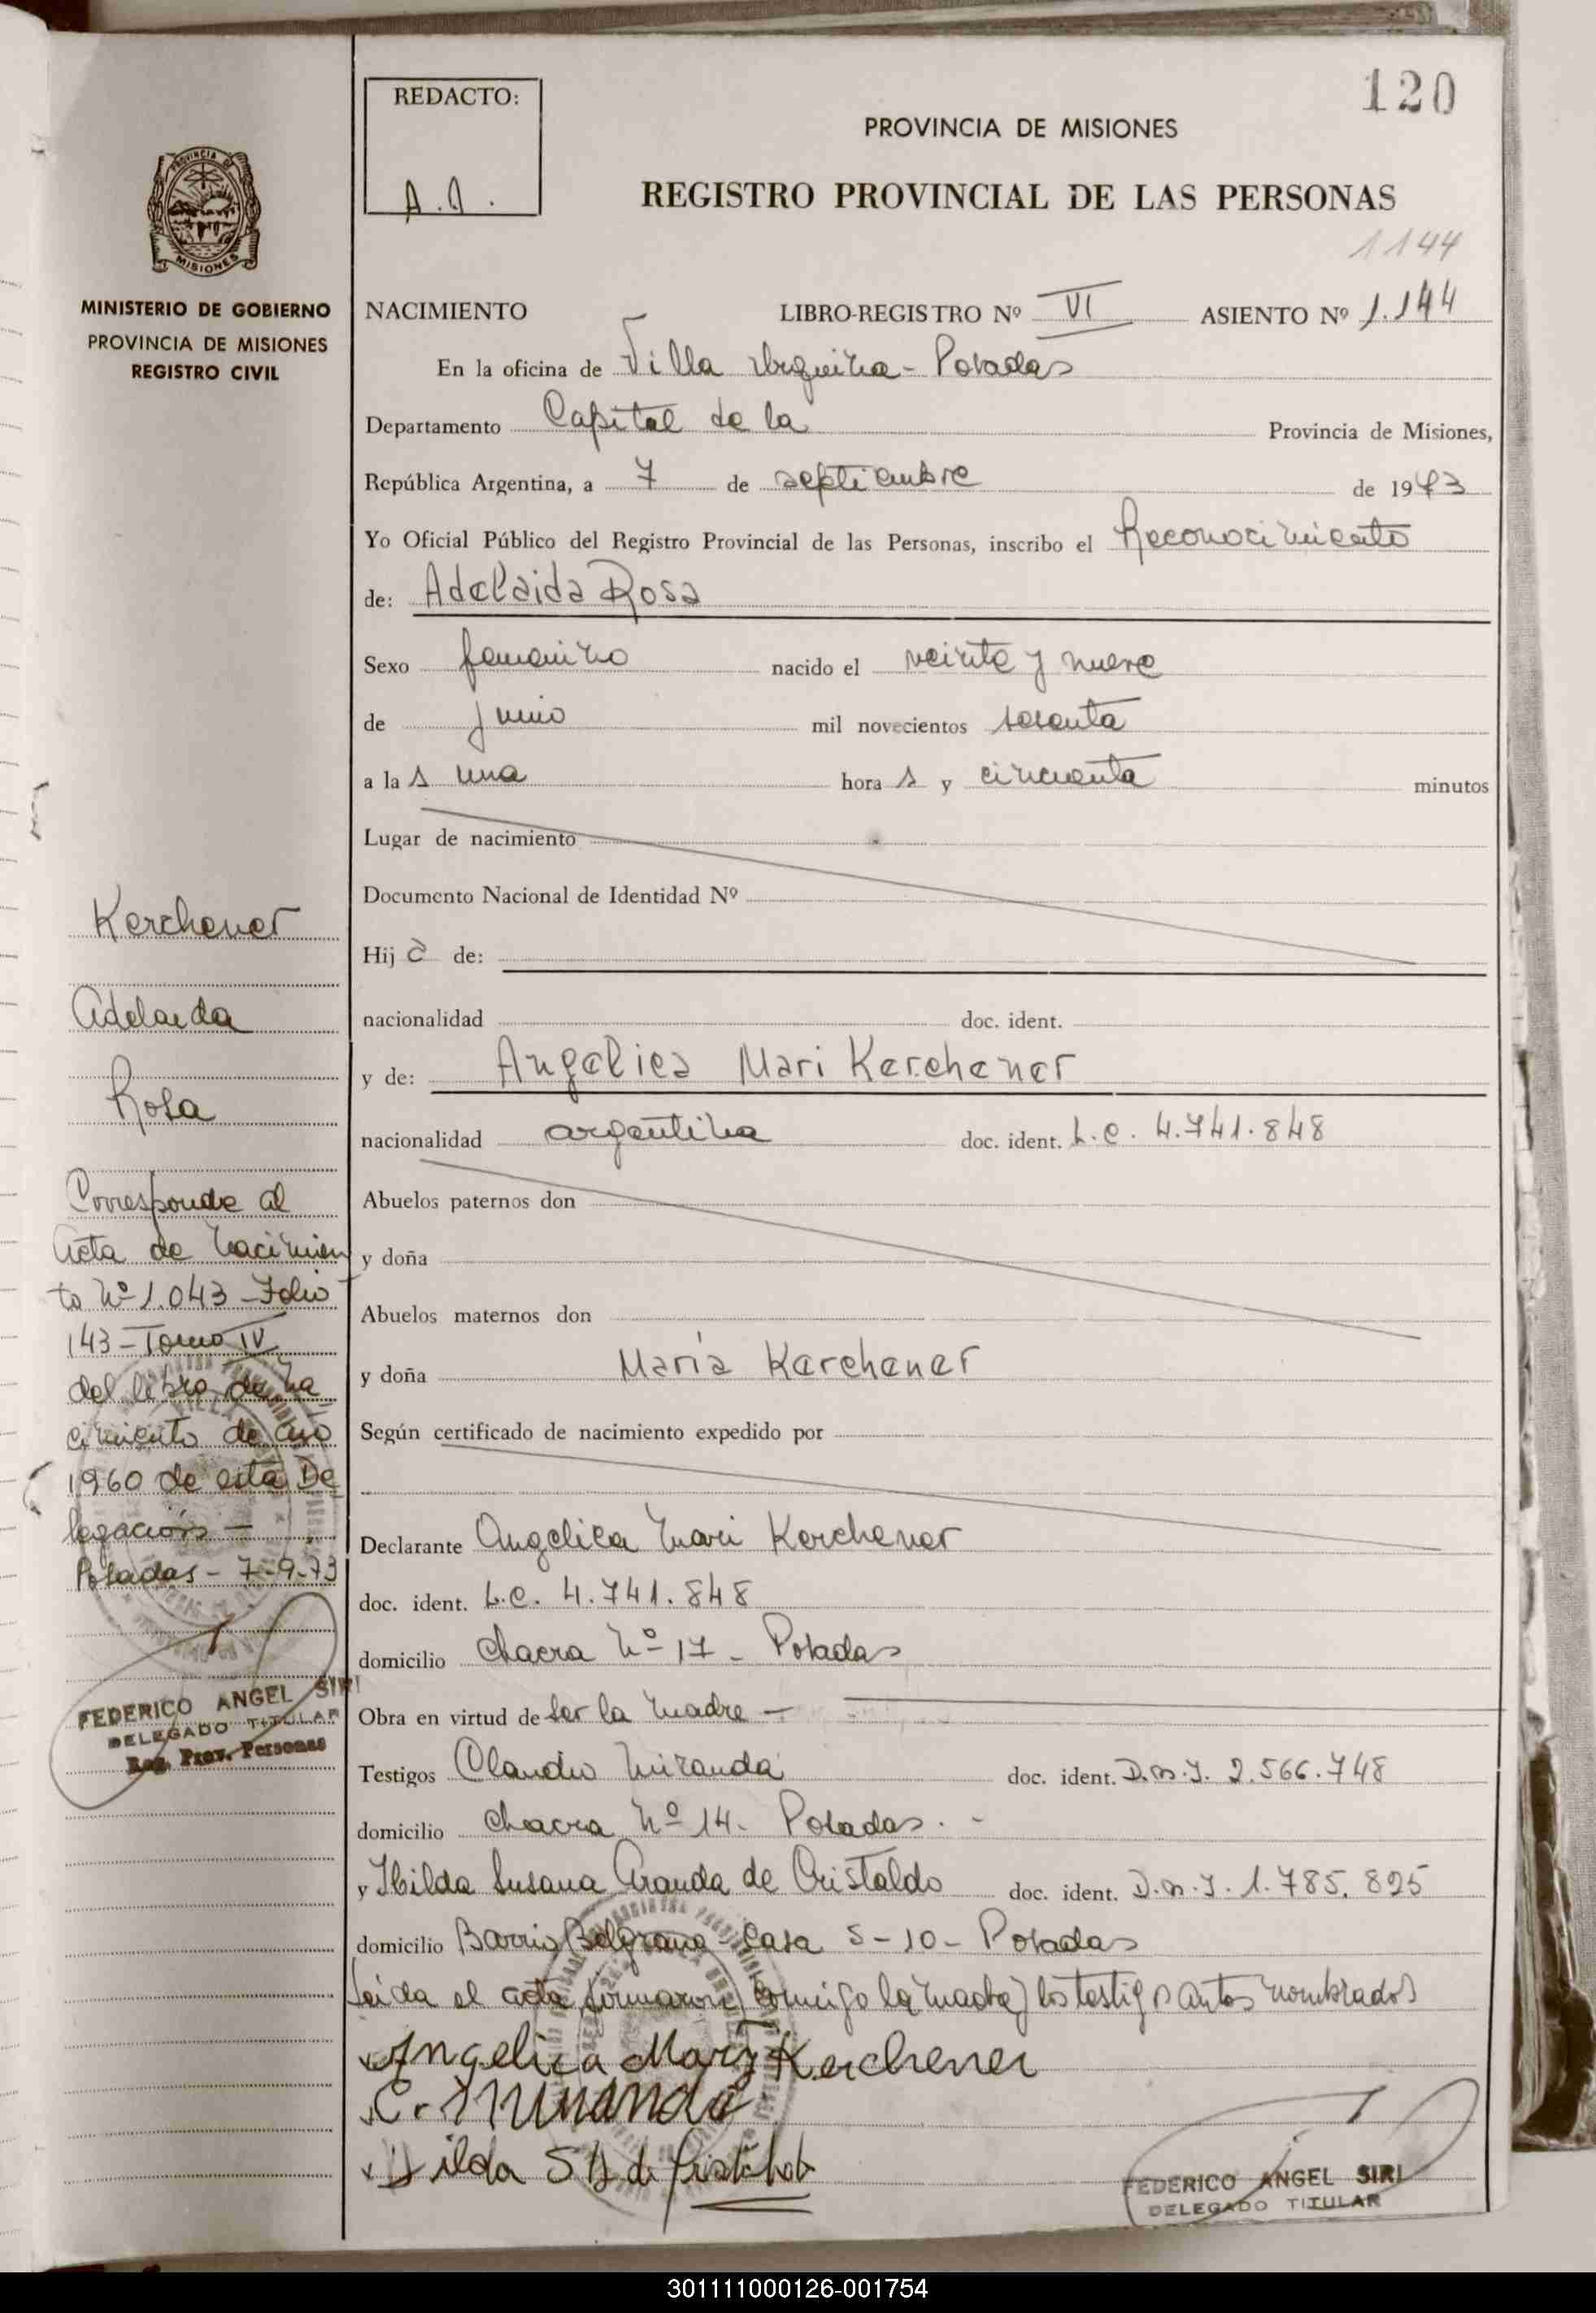 120
REDACTO:
A.A.
PROVINCIA DE MISIONES
REGISTRO PROVINCIAL DE LAS PERSONAS
1144
PROVINCIA DE
MISIONES
MINISTERIO DE GOBIERNO
PROVINCIA DE MISIONES
REGISTRO CIVIL
NACIMIENTO LIBRO-REGISTRO Nº VI ASIENTO Nº 1.144
En la oficina de Villa Urquiza - Posadas
Departamento Capital de la Provincia de Misiones,
República Argentina, a 7 de septiembre de 1973
Yo Oficial Público del Registro Provincial de las Personas, inscribo el Reconocimiento
de: Adelaida Rosa
Sexo femenino nacido el veinte y nueve
de junio mil novecientos sesenta
a la s una hora s y cincuenta minutos
Lugar de nacimiento
Documento Nacional de Identidad Nº
Hij a de:
nacionalidad doc. ident.
y de: Angelica Mari Kerchener
nacionalidad argentina doc. ident. L.C. 4.741.848
Abuelos paternos don
y doña
Abuelos maternos don
y doña Maria Kerchener
Según certificado de nacimiento expedido por
Declarante Angelica Mari Kerchener
doc. ident. L.C. 4.741.848
domicilio Chacra Nº 17 - Posadas
Obra en virtud de ser la madre -
Testigos Claudio Miranda doc. ident. D.N.I. 2.566.748
domicilio Chacra Nº 14. Posadas. -
y Hilda Susana Aranda de Cristaldo doc. ident. D.N.I. 1.785.825
domicilio Barrio Belgrano - Casa S-10 - Posadas
Leida el acta, firmaron conmigo la madre y los testigos antes nombrados
Angelica Mari Kerchener
C. Miranda
Hilda S A de Cristaldo
FEDERICO ANGEL SIRI
DELEGADO TITULAR
Kerchener
Adelaida
Rosa
Corresponde al
Acta de Nacimien
to Nº 1.043 - Folio
143 - Tomo IV
del libro de Na
cimiento de año
1960 de esta De
legación -
Posadas - 7-9-73
FEDERICO ANGEL SIRI
DELEGADO TITULAR
Reg. Prov. Personas
301111000126-001754